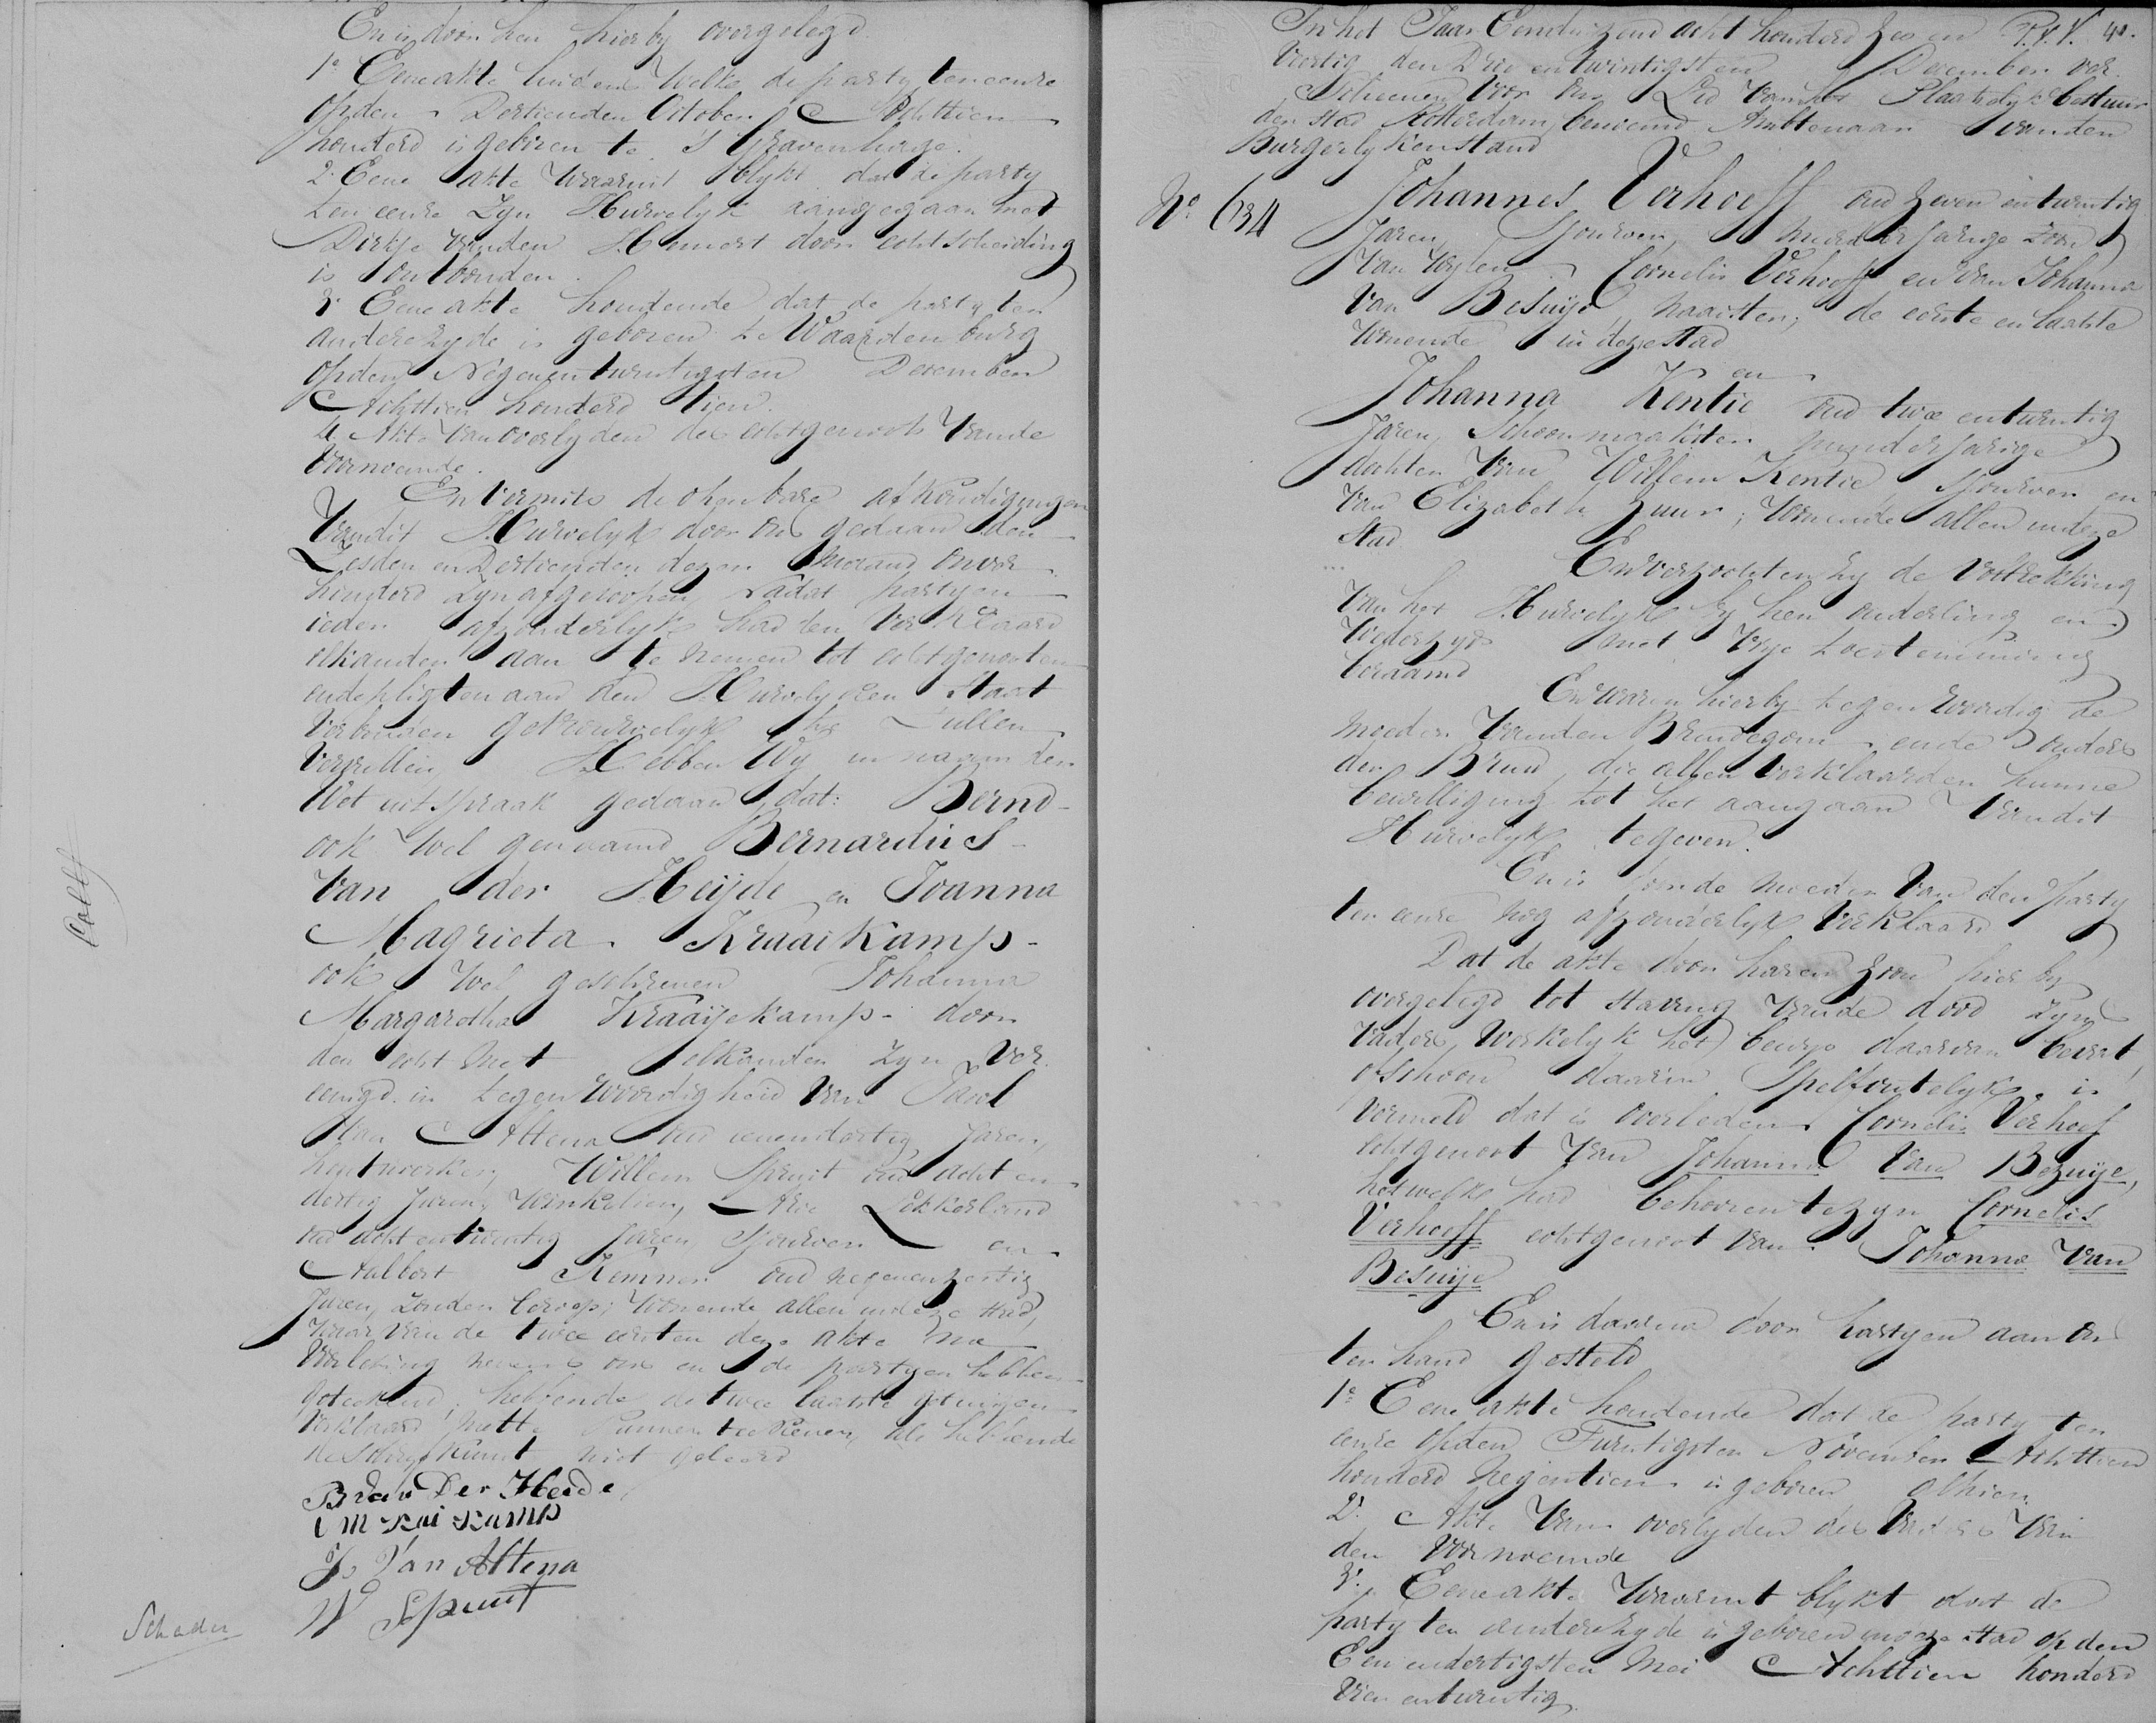 En is door hen hierby overgelegd
1e Eene akte luidens welke de party ten eenre
op den Dertienden October Achttien
honderd is geboren te 's Gravenhage.
2e Eene akte waaruit blykt dat de party
ten eenre zyn Huwelyk aangegaan met
Dirkje van den Hemert door echtscheiding
is ontbonden.
3e Eene akte houdende dat de party ten
andere zyde is geboren te Waardenburg
op den Negenentwintigsten December
Achttien honderd tien.
4e Akte van overlyden des echtgenoots van de
voornoemde.
En vermits de openbare afkondigingen
van dit Huwelyk door ons gedaan den
Zesden en Dertienden dezer maand onver
hinderd zyn afgeloopen, nadat partyen
ieder afzonderlyk hadden verklaard
elkander aan te nemen tot echtgenooten
en de pligten aan den Huwelyken Staat
verbonden getrouwelyk te zullen
vervullen, Hebben Wy in naam der
Wet uitspraak gedaan, dat: Bernd
ook wel genaamd Bernardus
van der Heijde en Joanna
Magrieta Kraaikamp
ook wel geschreven Johanna
Margaretha Kraaijekamp door
den echt met elkander zyn ver
eenigd in tegenwoordigheid van Jacob
van Attena oud eenendertig Jaren,
houtwerker, Willem Spruit oud acht en
dertig Jaren, Winkelier, Arie Lekkerland
oud acht entwintig Jaren Sjouwer en
Aalbert Kemner oud negenenzestig
Jaren, zonder beroep; wonende allen in deze stad,
waarvan de twee eersten deze akte na
voorlezing nevens ons en de partyen hebben
geteekend, hebbende de twee laatste getuigen
verklaard niet te kunnen teekenen, als hebbende
de schryfkunst niet geleerd
B van Der Heide
J M Kai kamp
Jb Van Attena
W Spruit
Schader
In het Jaar Eenduizend acht honderd zes en
Veertig, den Drie entwintigsten December ver
schenen voor ons Lid van het Plaatselyk bestuur
der stad Rotterdam, benoemd Ambtenaar van den
Burgerlyken stand
No 634 Johannes Verhoeff oud zeven entwintig
Jaren, Sjouwer, meerderjarige zoon
van wylen Cornelis Verhoeff en van Johanna
van Besuije, naaister, de eerste en laatste
wonende in deze stad
en
Johanna Kentie oud twee entwintig
Jaren, Schoonmaakster minderjarige
dochter van Willem Kentie, Sjouwer en
van Elizabeth Zuur; wonende allen in deze
stad
En verzochten zy de voltrekking
van het Huwelyk by hen onderling en
wederzyds met vrye toestemming
beraamd
En waren hierby tegenwoordig de
moeder van den Bruidegom en de ouders
der Bruid, die allen verklaarden hunne
bewilliging tot het aangaan van dit
Huwelyk te geven.
En is door de moeder van den party
ten eenre nog afzonderlyk verklaard
Dat de akte door haren zoon hier by
overgelegd tot staving van de dood zyns
vaders, werkelyk het bewys daarvan bevat,
ofschoon daarin Spelfoutelyk is
vermeld dat is overleden Cornelis Verhoef
echtgenoot van Johanna van Bezuije,
hetwelk had behooren te zyn Cornelis
Verhoeff echtgenoot van Johanna van
Besuije
En is daarna door partyen aan ons
ter hand gesteld
1e Eene akte houdende dat de party ten
eenre op den Twintigsten November Achttien
honderd Negentien is geboren alhier.
2e Akte van overlyden des vaders van
den voornoemde
3e Eene akte waaruit blykt dat de
party ten andere zyde is geboren in deze stad op den
Een endertigsten Mei Achttien honderd
vier entwintig